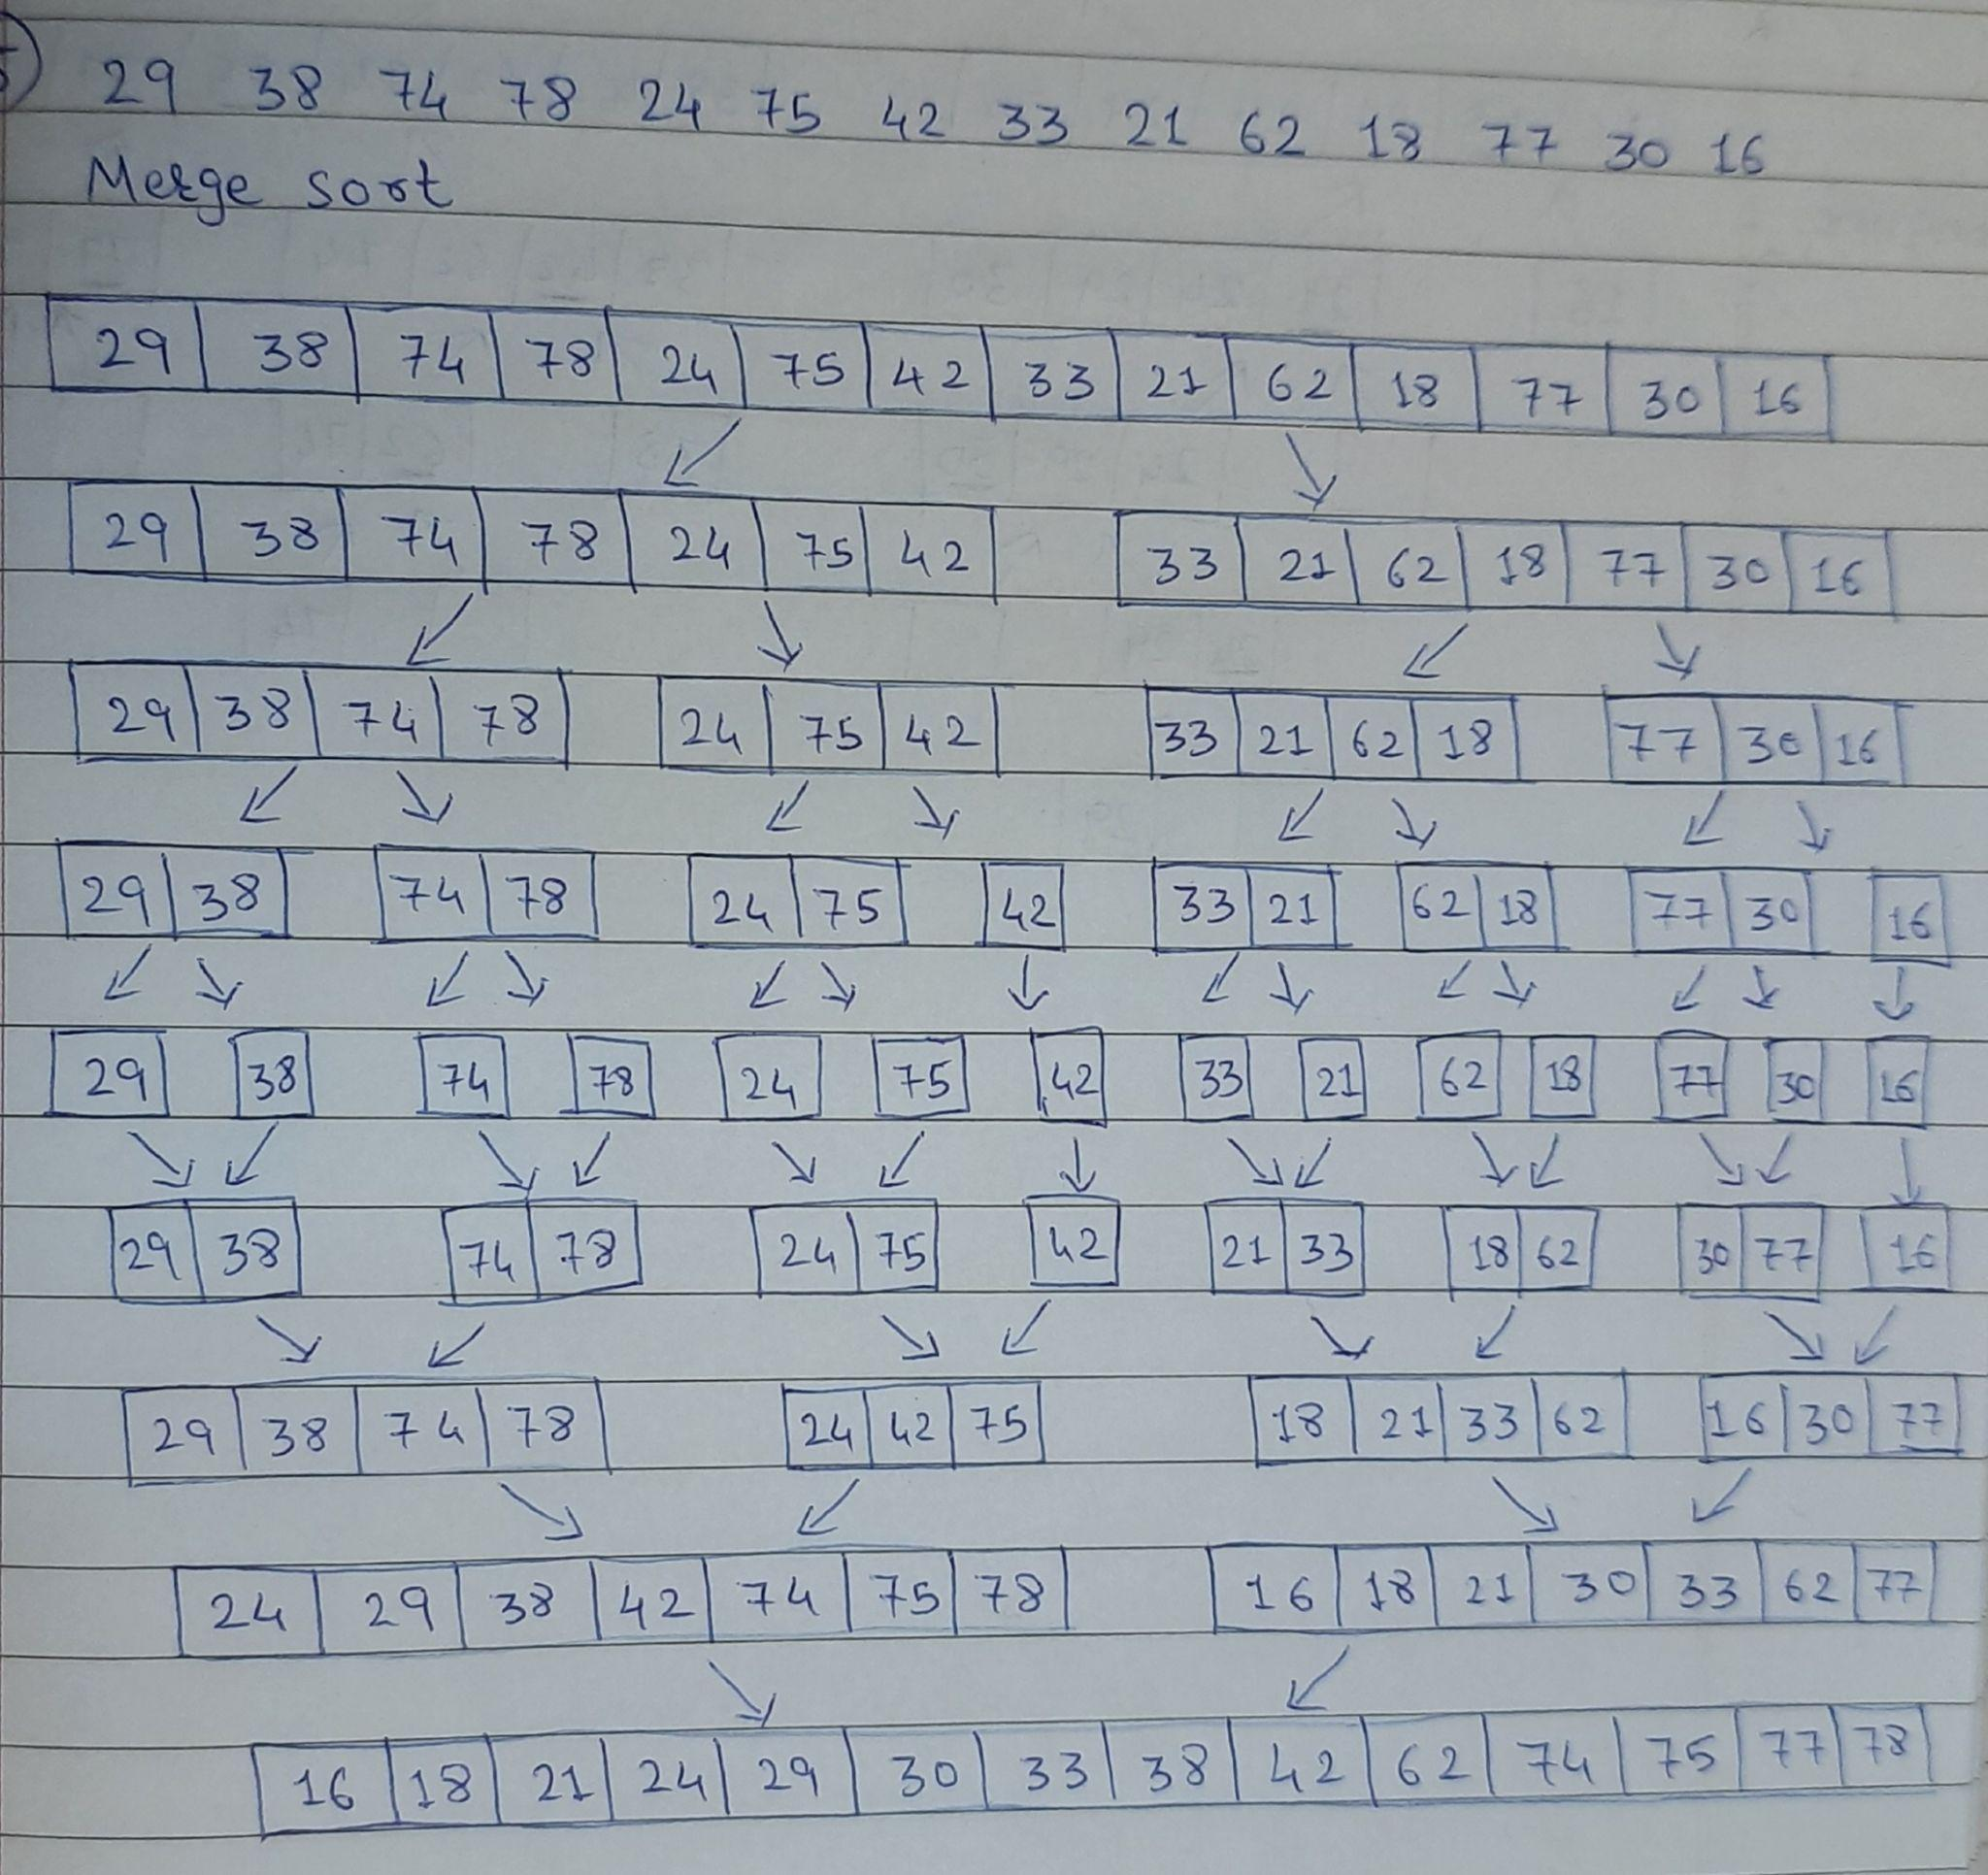 29 38 74 78 24 75 42 33 21 62 18 77 30 16
Merge sort
29 38 74 78 24 75 42 33 21 62 18 77 30 16
29 38 74 78 24 75 42 33 21 62 18 77 30 16
29 38 74 78 24 75 42 33 21 62 18 77 30 16
29 38 74 78 24 75 42 33 21 62 18 77 30 16
29 38 74 78 24 75 42 33 21 62 18 77 30 16
29 38 74 78 24 75 42 21 33 18 62 30 77 16
29 38 74 78 24 42 75 18 21 33 62 16 30 77
24 29 38 42 74 75 78 16 18 21 30 33 62 77
16 18 21 24 29 30 33 38 42 62 74 75 77 78